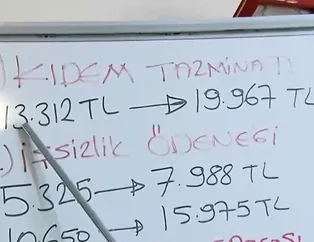 ) KIDEM TAZMİNATI
13.312 TL → 19.967 TL
.) İŞSİZLİK ÖDENEĞİ
5.325 → 7.988 TL
10.650 → 15.975 TL